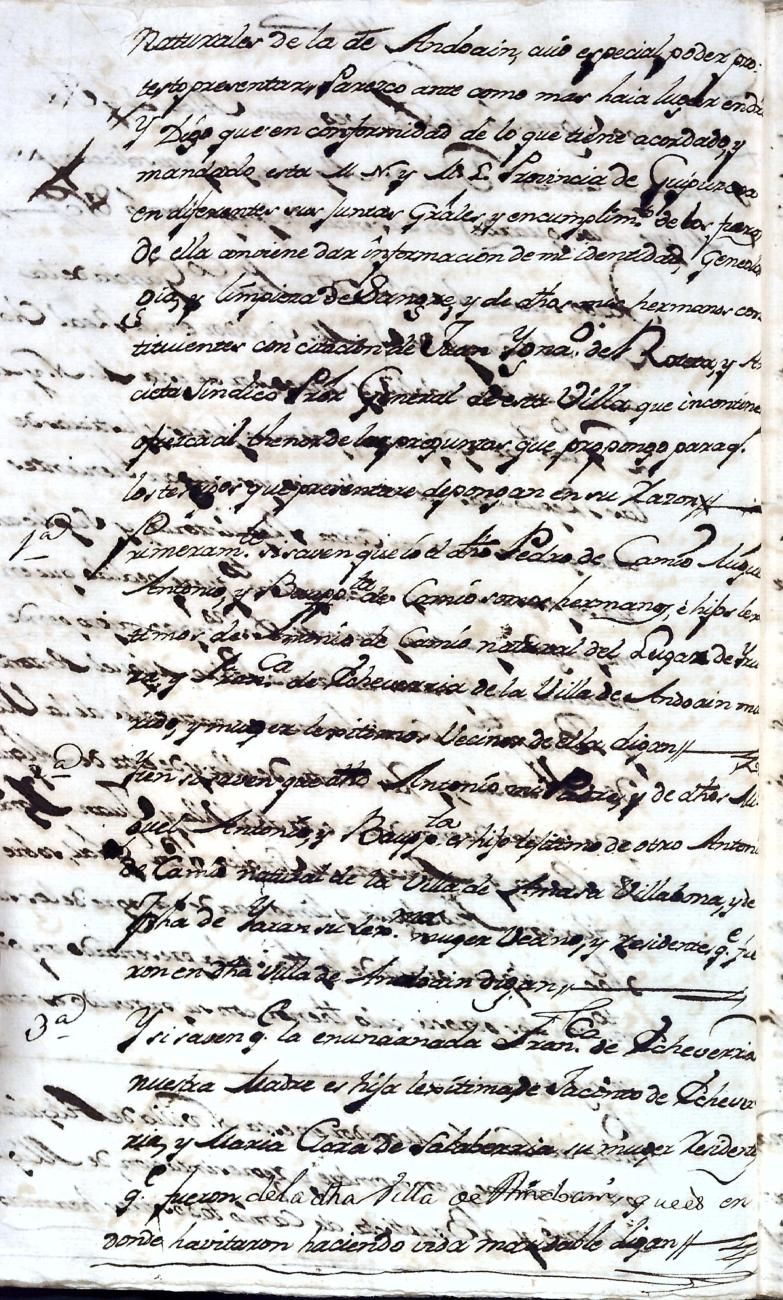 Naturales de la de Andoain, cuio especial poder pro-
testo presentar, Parezco ante como mas haia lugar en dro
Y Digo que en conformidad de lo que tiene acordado, y
mandado esta M. N. y M. L. Provincia de Guipuzcoa
en diferentes sus Juntas Grâles y en cumplimto de los fueros
de ella conviene dar informacion de mi identidad, Geneolo
gia, y limpieza de Sangre, y de dhos mis hermanos cons
tituientes con citacion de Juan Ygnao. de Roteta, y Ar
cieta Sindico Pror General de esta Villa que incontine
ofrezca al thenor de las preguntas que propongo para q.
los testigos que presentare depongan en su razon
1a Primeramte. si saven que io el dho Pedro de Camio Migue
Antonio, y Baupta. de Camio somos hermanos, è hijos lex
timos de Antonio de Camio natural del Lugar de Yru
ra, y Franca. de Echeverria de la Villa de Andoain ma
rido, y muger lexitimos Vecinos de ella digan
2a Yten si saven que dho Antonio mi Padre, y de dhos Mi
guel Antonio, y Baupta. es hijo lejitimo de otro Antoni
de Camio natural de la Villa de Amasa Villabona, y de
Jpha de Yarza su lexma. muger Vecinos, y residentes qe. fue
ron en dha Villa de Andoain digan
3a Y si saven q. la enunciada Franca. de Echeverria
nuestra Madre es hija lexitima de Jacinto de Echever
ria, y Maria Clara de Salaberria su muger residente
qe. fueron de la dha Villa de Andoain, y que es en
donde havitaron haciendo vida maridable digan